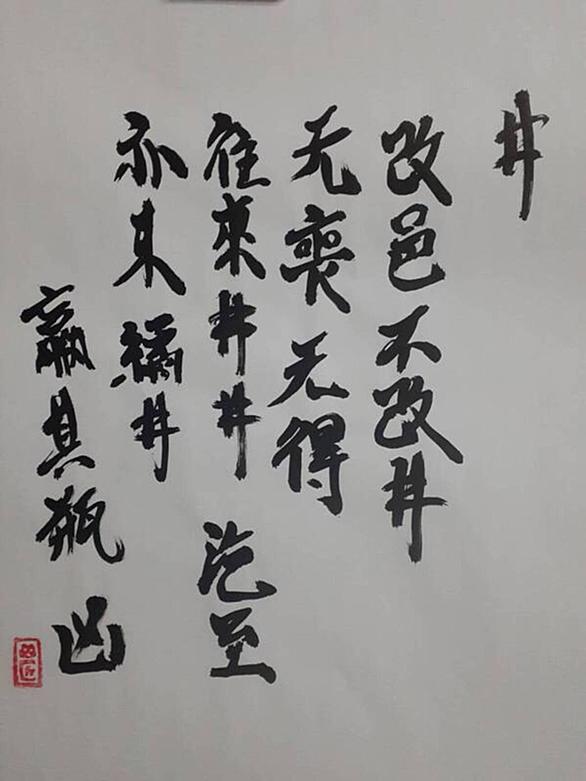 井
改邑不改井
无喪无得
往來井井 汔至
亦未繘井
羸其瓶 凶